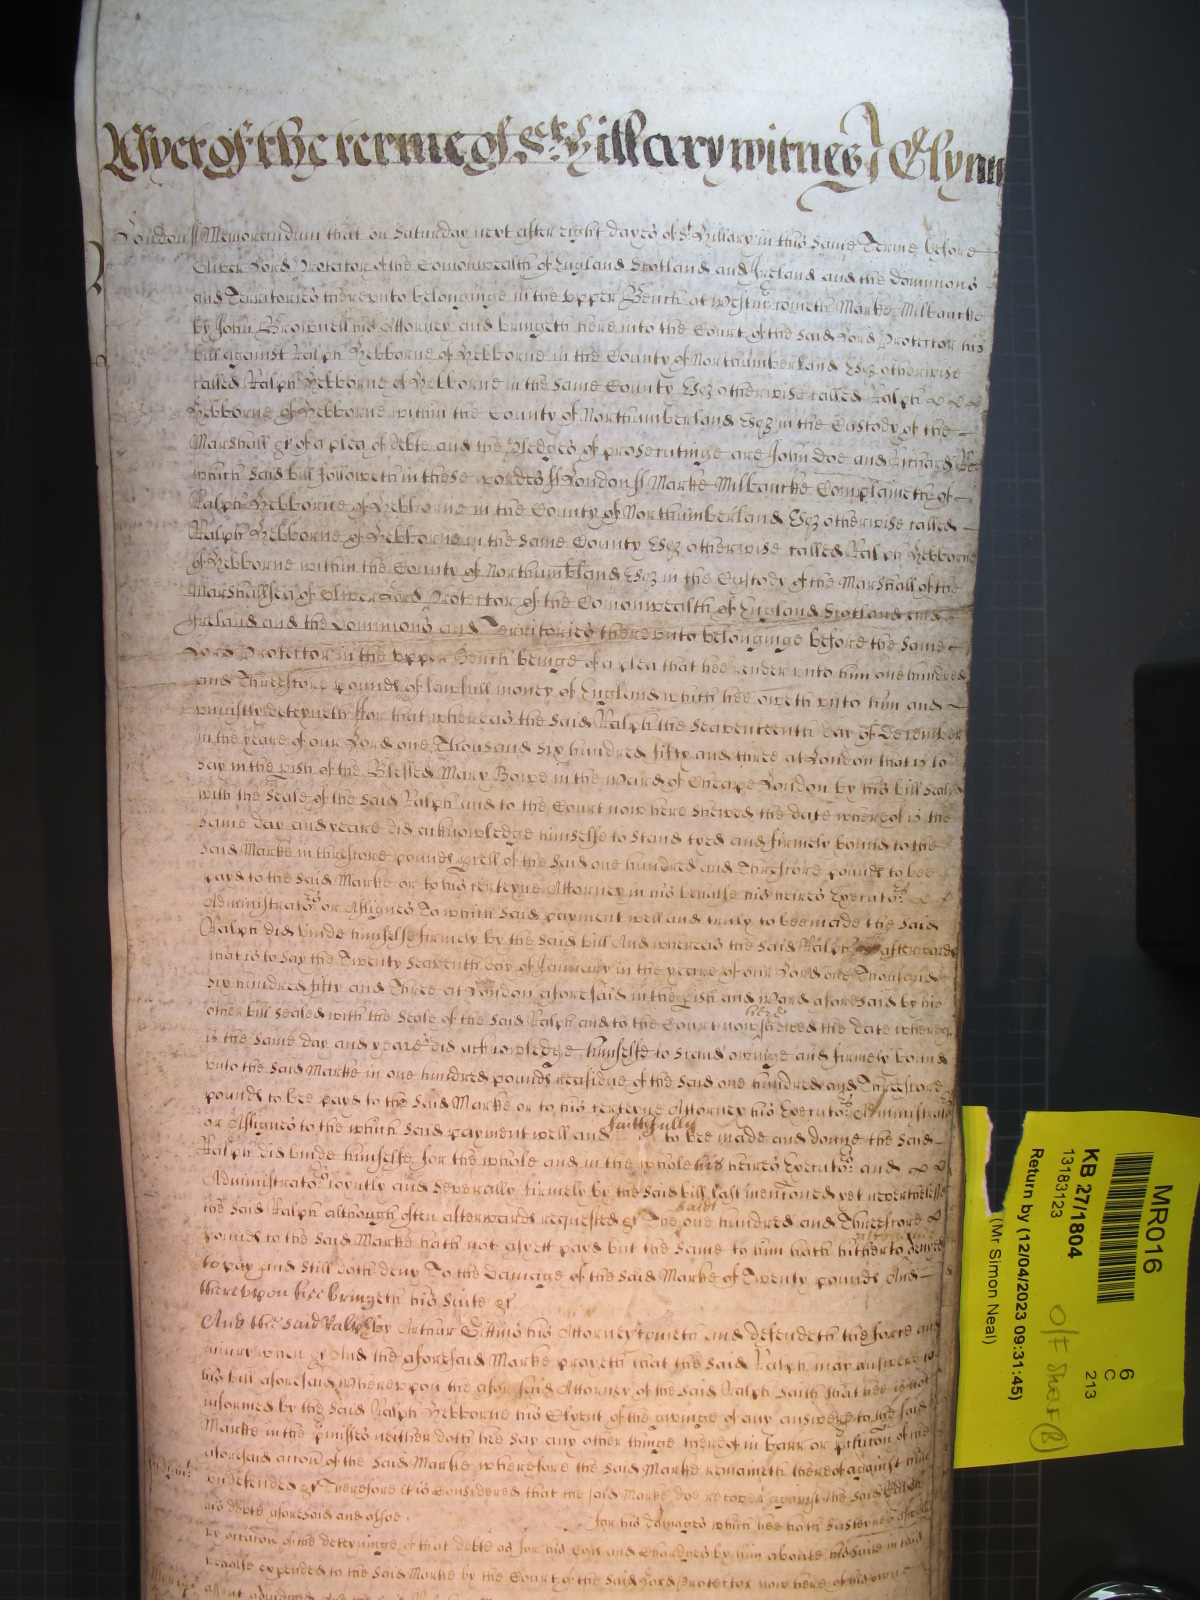 Yet of the terme of St Hillary witnes J Glynn
London ss Memorandum that on Saturday next after eight dayes of St Hillary in this same Terme before
Oliver Lord Protector of the Comonwealth of England Scotland and Ireland and the dominions
and Territories thereunto belonginge in the upper Bench at Westmr cometh Marke Milbancke
by John Brownell his Attorney and bringeth here into the Court of the said Lord Protector his
bill against Ralph Hebborne of Hebborne in the County of Northumberland Esqz otherwise
called Ralph Hebborne of Hebborne in the same County Esqz otherwise called Ralph
Hebborne of Hebborne within the County of Northumberland Esqz in the Custody of the
Marshall &c of a plea of debte and the Pledges of prosecutinge are John Doe and Richard Roe
which said bill followeth in these wordes ss London ss Marke Milbancke Complaineth of
Ralph Hebborne of Hebborne in the County of Northumberland Esqz otherwise called
Ralph Hebborne of Hebborne in the same County Esqz otherwise called Ralph Hebborne
of Hebborne within the County of Northumbland Esqz in the Custody of the Marshall of the
Marshallsea of Oliver Lord Protector of the Comonwealth of England Scotland and
Ireland and the Dominions and Territories thereunto belonginge before the same
Lord Protector in the upper Bench beinge of a plea that hee render unto him one hundred
and Threescore pounds of lawfull money of England which hee oweth unto him and
uniustly deteyneth For that whereas the said Ralph the Seaventeenth day of December
in the yeare of our Lord one Thousand six hundred fifty and three at London that is to
say in the pish of the Blessed Mary Bowe in the ward of Cheape London by his bill sealed
with the Seale of the said Ralph and to the Court now here shewed the date whereof is the
same day and yeare did acknowledge himselfe to stand tyed and firmely bound to the
said Marke in threescore pounds pcell of the said one hundred and Threescore pounds to bee
payd to the said Marke or to his certeyne Attorney in his behalfe his heires Executors
Administrators or Assignes To which said payment well and truly to bee made the said
Ralph did binde himselfe firmely by the said bill And whereas the said Ralph afterwards
that is to say the Twenty Seaventh day of January in the yeare of our Lord one Thousand
six hundred fifty and Three at London aforesaid in the pish and ward aforesaid by his
other bill sealed with the Seale of the said Ralph and to the Court now here shewed the date whereof
is the same day and yeare did acknowledge himselfe to stand and firmely bound
unto the said Marke in one hundred pounds residue of the said one hundred and Threescore
pounds to bee payd to the said Marke or to his certeyne Attorney his Executors Administrators
or Assignes to the which said payment well and faithfully to bee made and donne the said
Ralph did binde himselfe for the whole and in the whole his heires Executors and
Administrators ioyntly and severally firmely by the said bill last mentioned yet neverthelesse
the said Ralph although often afterwards requested &c The said one hundred and Threescore
pounds to the said Marke hath not as yett payd but the same to him hath hitherto denyed
to pay and still doth deny To the damage of the said Marke of Twenty pounds And
thereupon hee bringeth his suite &c
And the said Ralph by Arthur Gittins his Attorney cometh and defendeth the force and
iniury when &c And the aforesaid Marke prayeth that the said Ralph may answere to
his bill aforesaid Whereupon the aforesaid Attorney of the said Ralph saith that hee is not
informed by the said Ralph Hebborne his Clyent of the givinge of any answere to the said
Marke in the pmisses neither doth hee say any other thinge thereof in barr or of the
aforesaid accon of the said Marke wherefore the said Marke remaineth thereof against him
undefended &c Therefore it is Considered that the said Marke doe recover against the said Ralph
his debte aforesaid and alsoe for his damages which hee hath susteyned
by occasion of the deteyninge of that debte as for his Costs and Chardges by him aboute his suite in this
behalfe expended to the said Marke by the Court of the said Lord Protector now here of his owne
assent adiudged
MR016
6
C
213
KB 27/1804
13183123
Return by (12/04/2023 09:31:45)
(Mr Simon Neal)